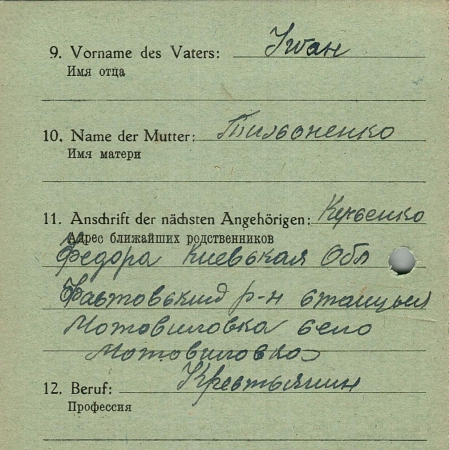 9. Vorname des Vaters: Іван
Имя отца
10. Name der Mutter: Тильоненко
Имя матери
11. Anschrift der nächsten Angehörigen:
Адрес ближайших родственников
Федора Киевская Обл
р-н станцыя
Мотовиловка село
Мотовиловка
12. Beruf: Крестьянин
Профессия